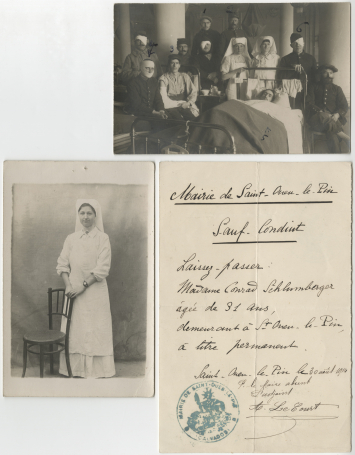 Mairie de Saint-Ouen-le-Pin
Sauf-Conduit
Laissez-passer:
Madame Conrad Schlumberger
agée de 31 ans,
demeurant à St Ouen-le-Pin,
à titre permanent.
Saint-Ouen-le Pin le 30 août 1914
P. le Maire absent
MAIRIE DE SAINT-OUEN-LE-PIN
CALVADOS